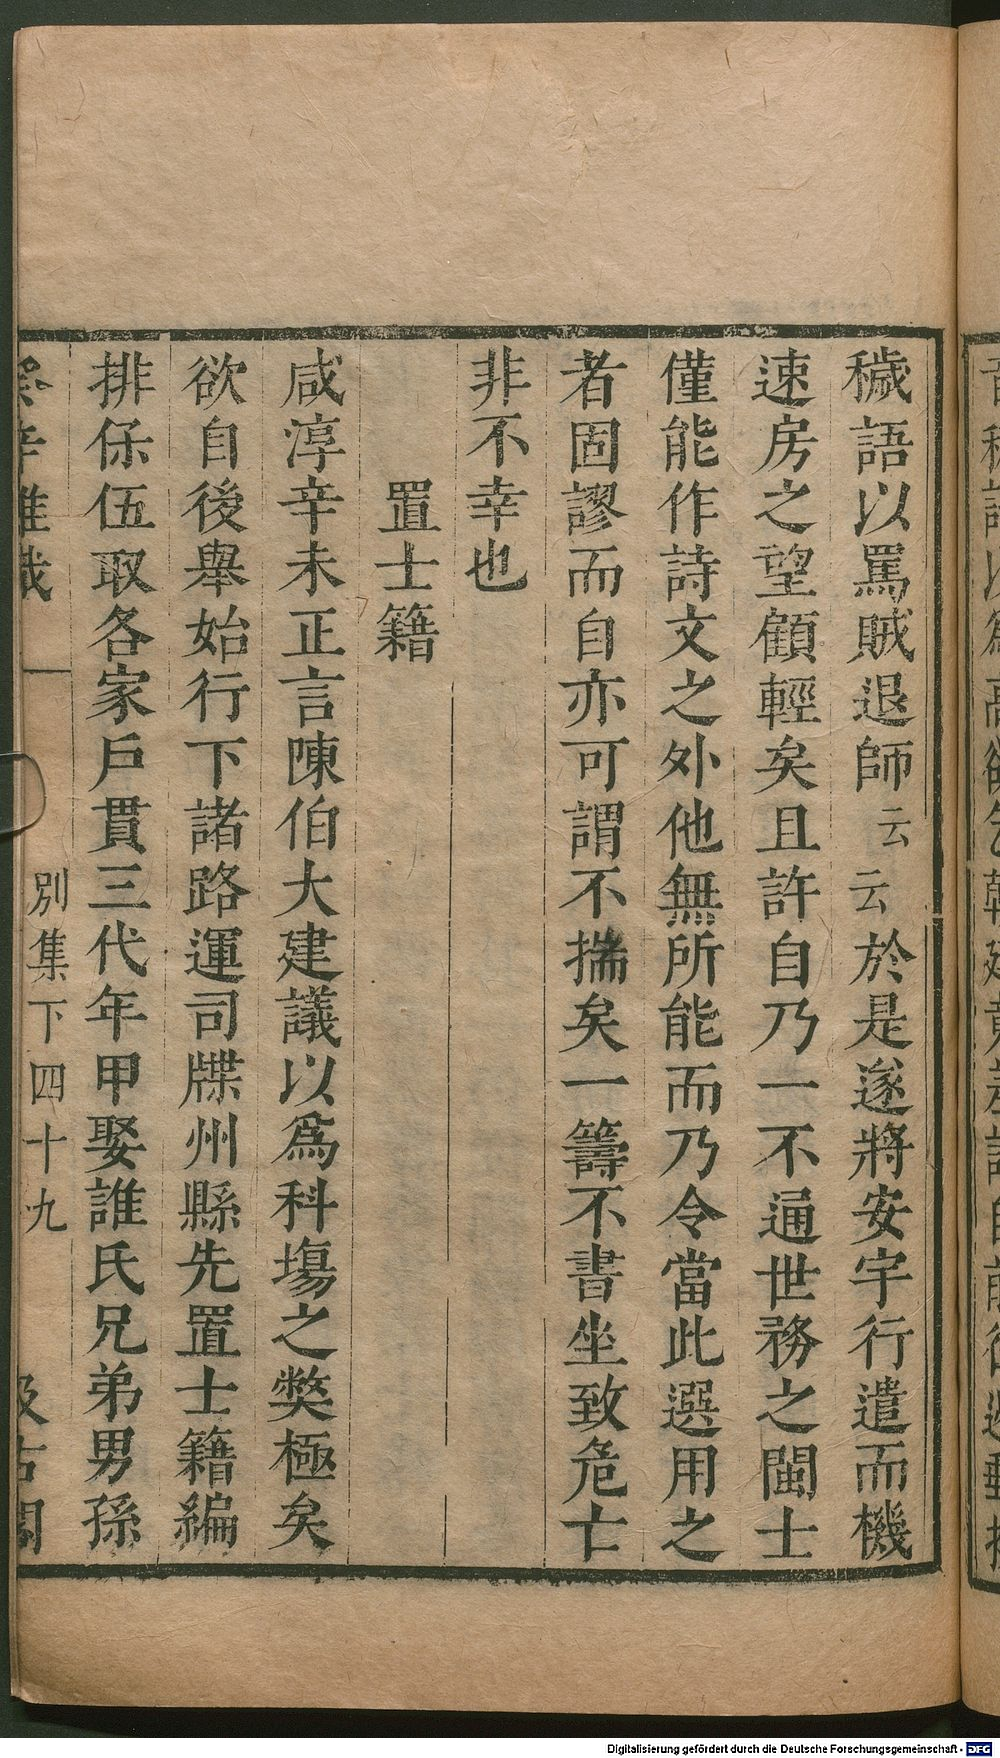 穢語以罵賊退師云云於是遂將安宇行遣而機
速房之望顧輕矣且許自乃一不通世務之閩士
僅能作詩文之外他無所能而乃令當此選用之
者固謬而自亦可謂不揣矣一籌不書坐致危亡
非不幸也
置士籍
咸淳辛未正言陳伯大建議以爲科塲之獘極矣
欲自後舉始行下諸路運司牒州縣先置士籍編
排保伍取各家戶貫三代年甲娶誰氏兄弟男孫
癸辛雜識
別集下四十九
汲古閣
Digitalisierung gefördert durch die Deutsche Forschungsgemeinschaft - DFG